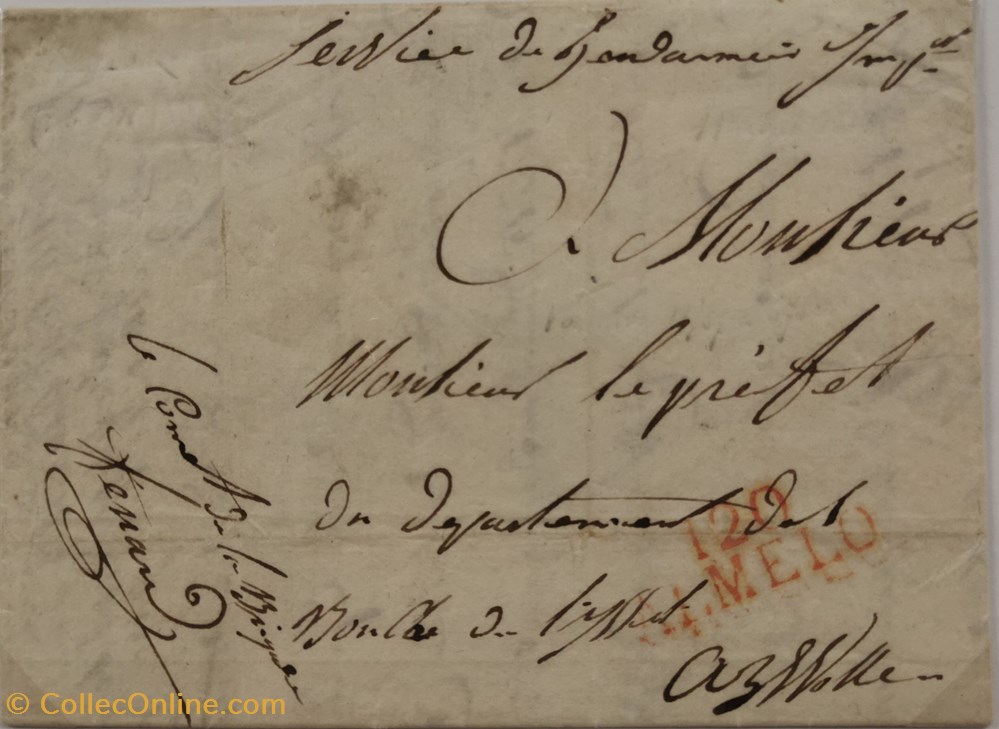 Service de Gendarmerie Imp.le
A Monsieur
Monsieur le préfet
du département des
Bouches de l'yssel
a Zwolle
120
ALMELO
le Comdt de la Brigade
© CollecOnline.com